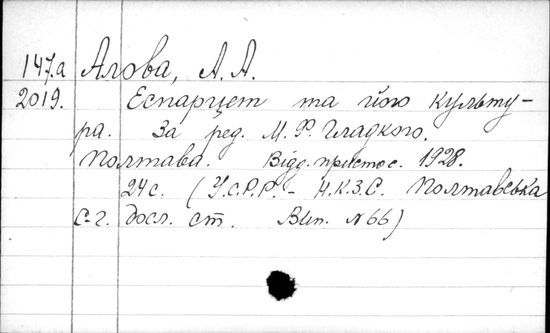 147.а Агова, А. А.
2019. Еспарцет та його культу-
ра. За ред. М. Ф. Гладкого.
Полтава. Відд. пристос. 1928.
24 с. (У.С.Р.Р. - Н.К.З.С. Полтавська
с-г. досл. ст. Вип. №66)